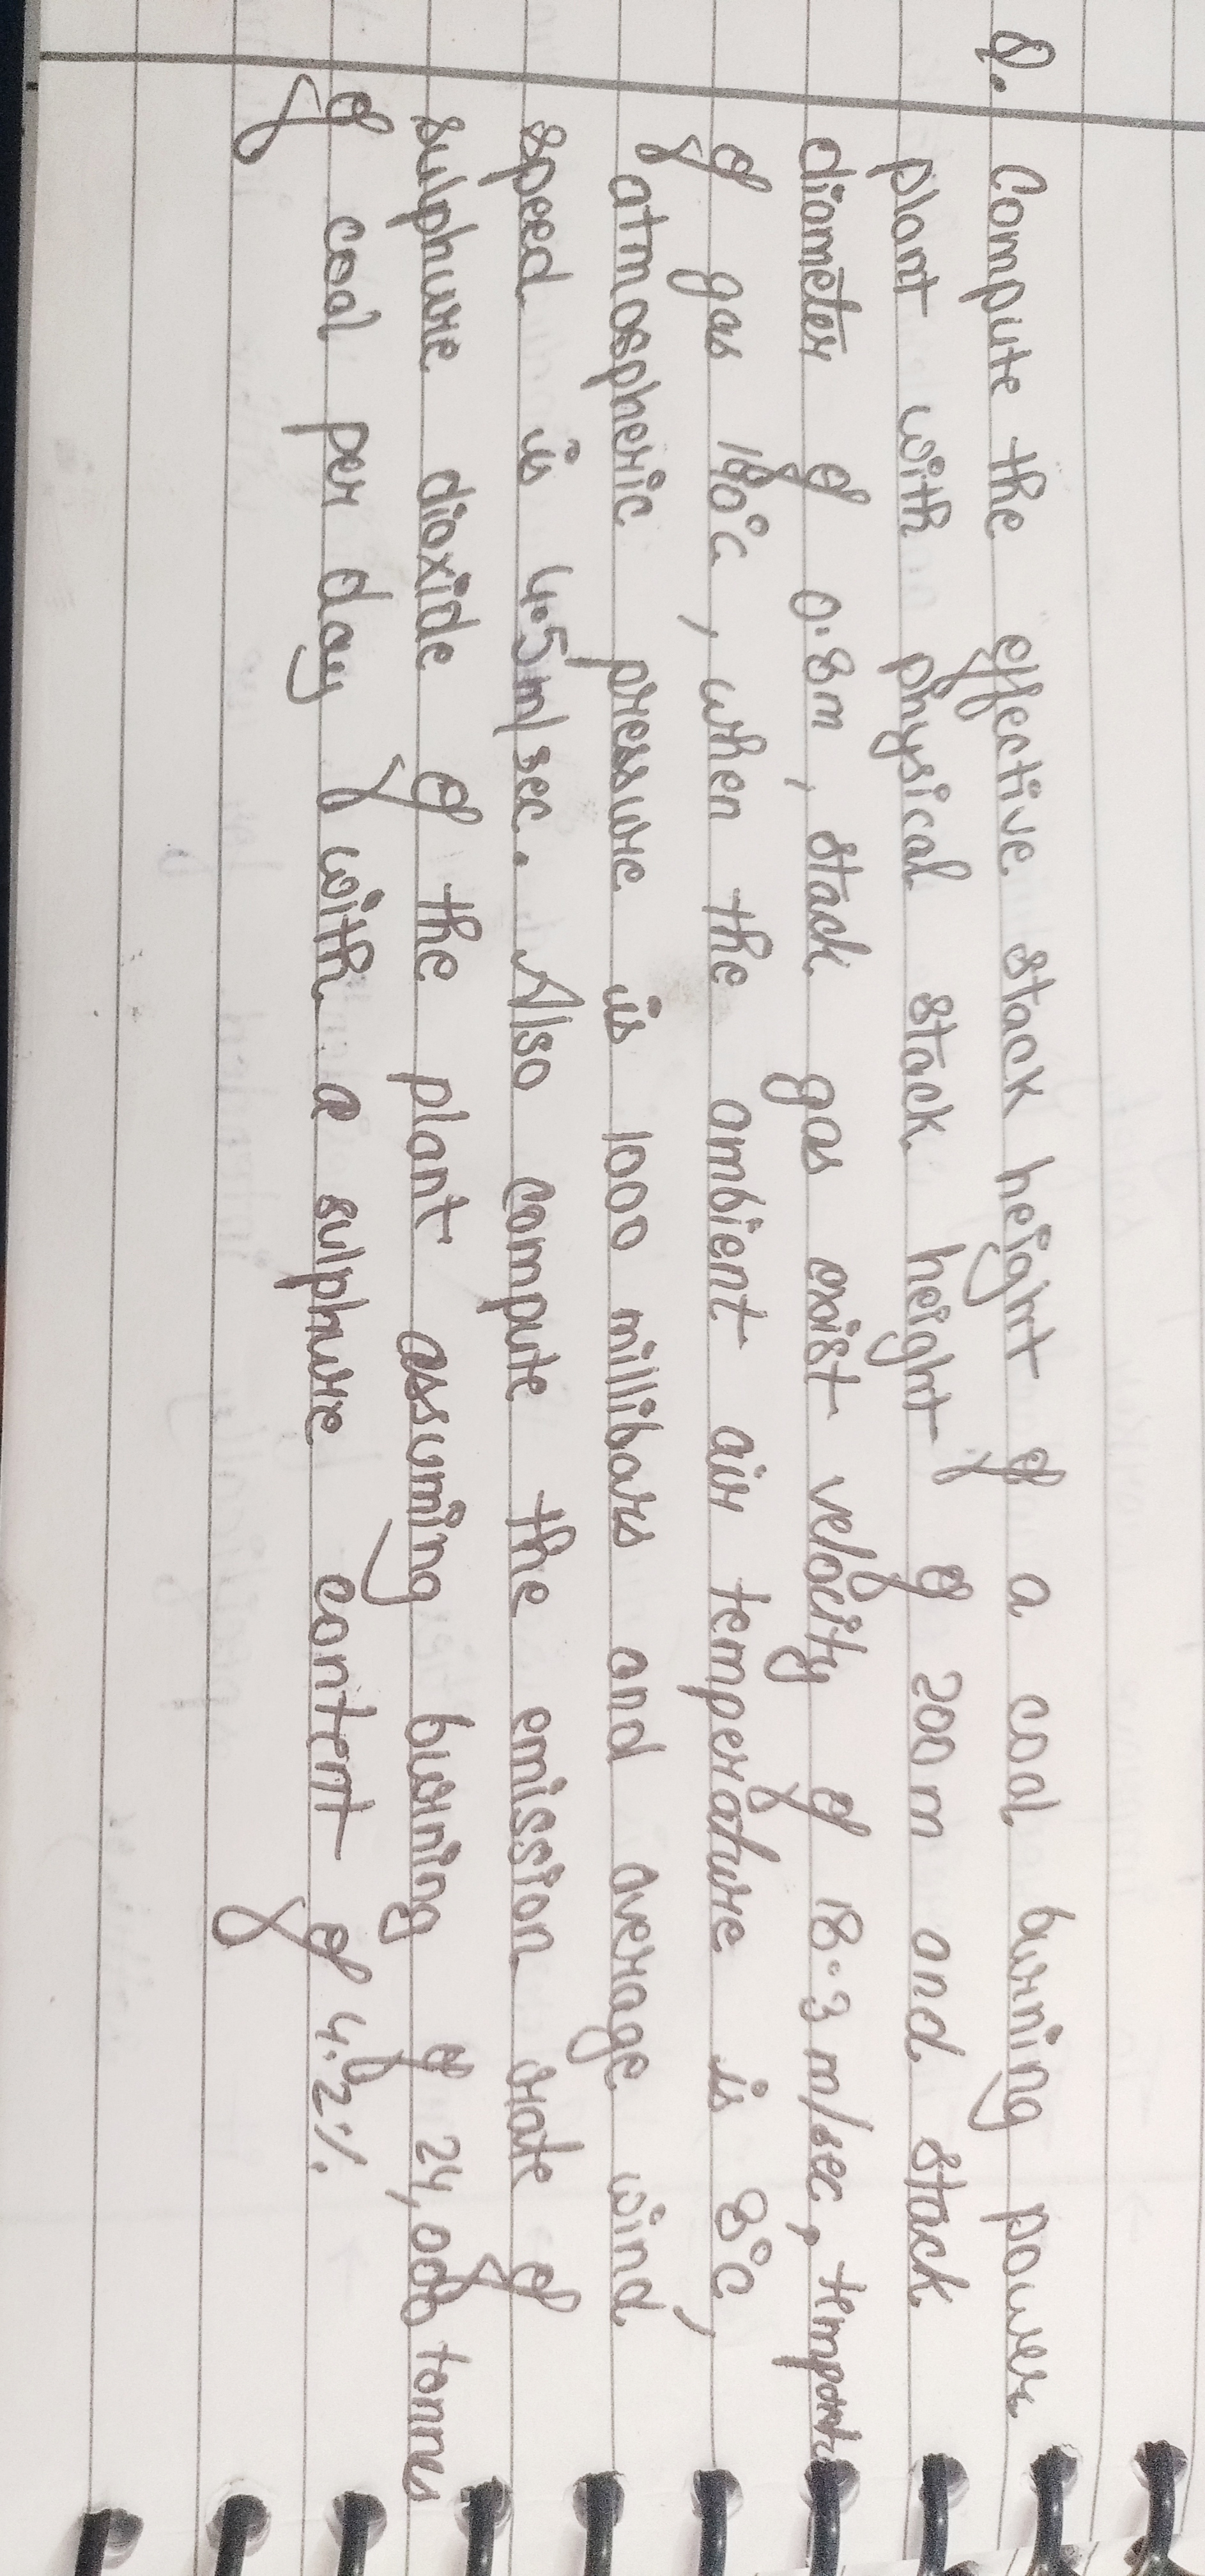 Q. Compute the effective stack height of a coal burning power
plant with physical stack height of 200m and stack
diameter of 0.8m, stack gas exist velocity of 18.3 m/sec,
of gas 140°C, when the ambient air temperature is 8°C,
atmospheric pressure is 1000 millibars and average wind
speed is 4.5m/sec. Also compute the emission rate of
sulphure dioxide of the plant assuming burning of 24,000 tonnes
of coal per day with a sulphure content of 4.2%.